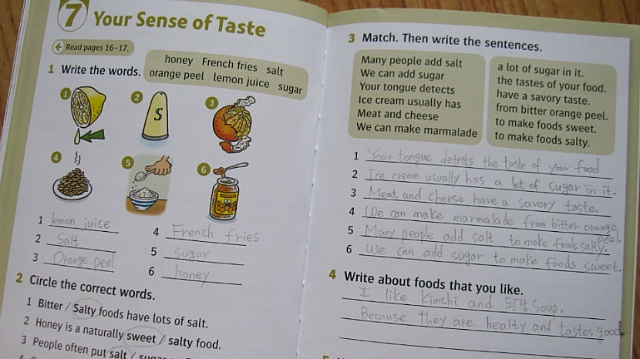 7 Your Sense of Taste
Read pages 16–17.
1 Write the words.
honey French fries salt
orange peel lemon juice sugar
1
2
S
3
4
5
6
1 lemon juice
2 Salt
3 Orange peel
4 French fries
5 sugar
6 honey
2 Circle the correct words.
1 Bitter / Salty foods have lots of salt.
2 Honey is a naturally sweet / salty food.
3 People often put salt /
3 Match. Then write the sentences.
Many people add salt
We can add sugar
Your tongue detects
Ice cream usually has
Meat and cheese
We can make marmalade
a lot of sugar in it.
the tastes of your food.
have a savory taste.
from bitter orange peel.
to make foods sweet.
to make foods salty.
1 Your tongue detects the taste of your food.
2 Ice cream usually has a lot of sugar in it.
3 Meat and cheese have a savory taste.
4 We can make marmalade from bitter orange peel.
5 Many people add salt to make foods salty.
6 We can add sugar to make foods sweet.
4 Write about foods that you like.
I like kimchi and 된장 soup.
Because they are healthy and tastes good.